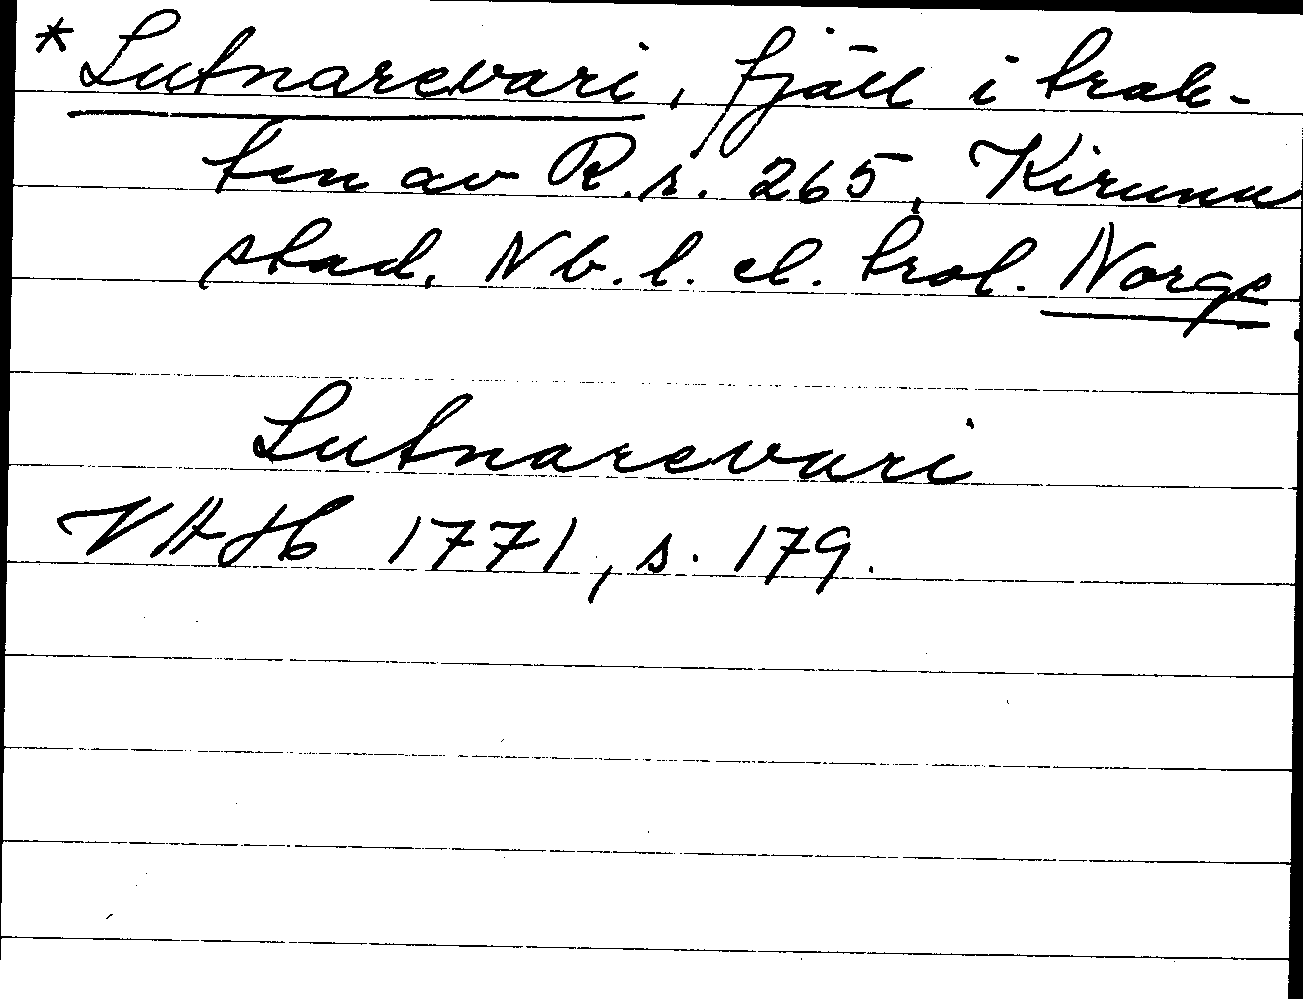 *Lutnarevari, fjäll i trak-
ten av R.r. 265, Kiruna
stad, Nb. l. el. trol. Norge.
Lutnarevari
VHH 1771, s. 179.